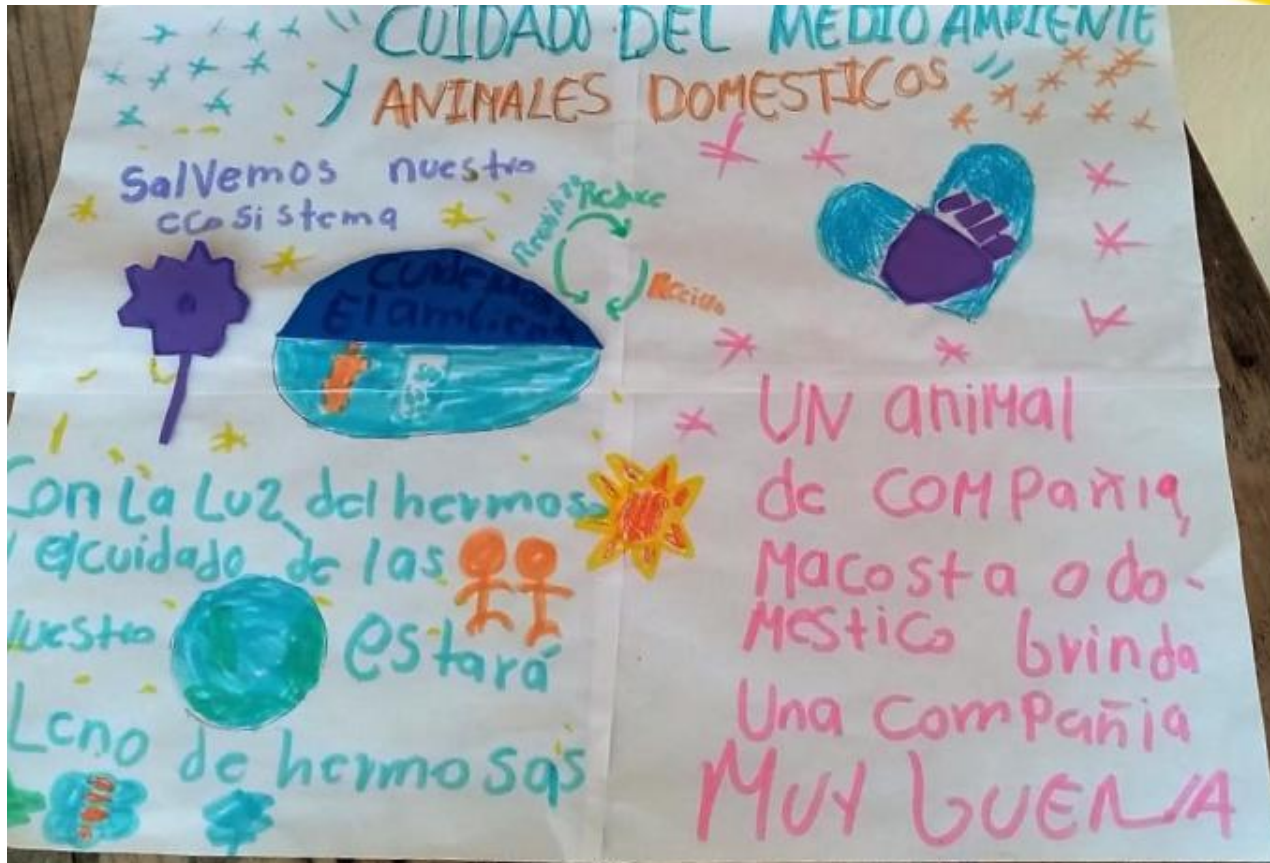 "CUIDADO DEL MEDIO AMBIENTE
Y ANIMALES DOMESTICOS"
Salvemos nuestro
ecosistema
Reduce
El ambiente
Con La Luz del hermoso
el cuidado de las
estará
Leno de hermosas
UN aniMal
de COMPañia,
Macosta o do-
Mestico brinda
Una ComPañia
MUY bUENA